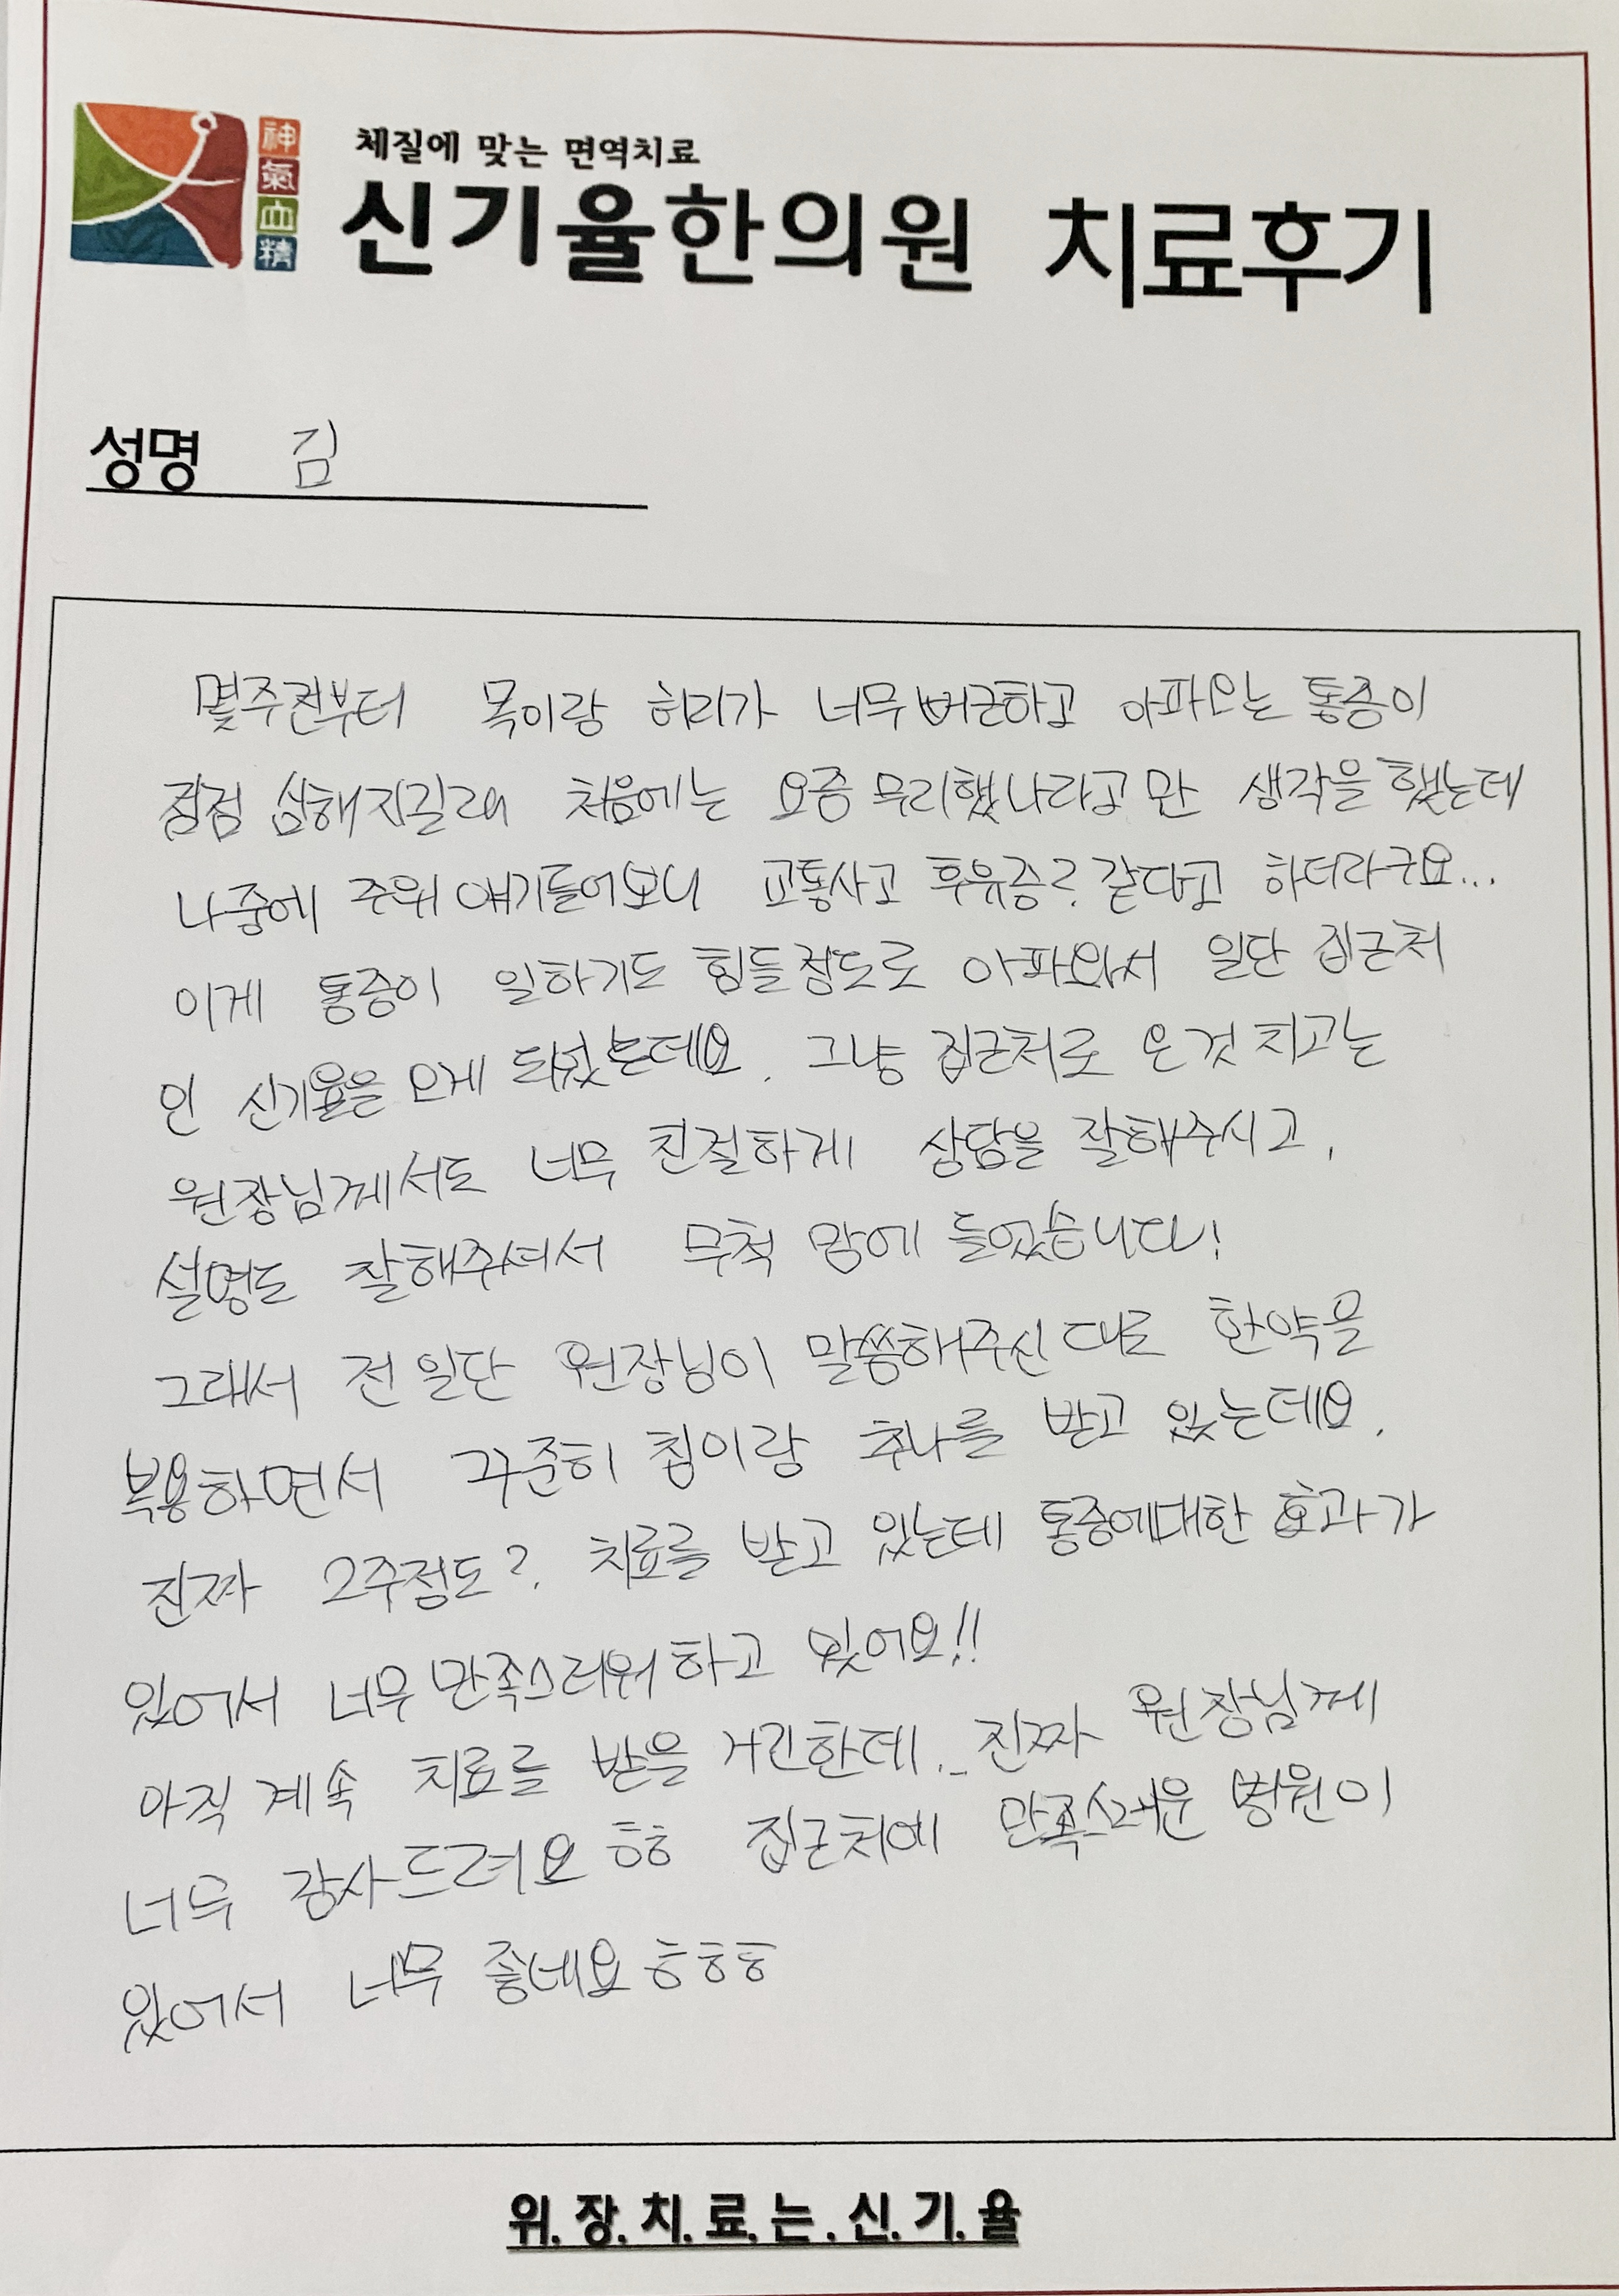 神氣血精
체질에 맞는 면역치료
신기율한의원 치료후기
성명 김
몇주전부터 목이랑 허리가 너무 뻐근하고 아파오는 통증이
점점 심해지길래 처음에는 요즘 무리했나라고만 생각을 했는데
나중에 주위 얘기들어보니 교통사고 후유증? 같다고 하더라구요...
이게 통증이 일하기도 힘들정도로 아파와서 일단 집근처
인 신기율을 오게 되었는데요. 그냥 집근처로 온것 치고는
원장님께서도 너무 친절하게 상담을 잘해주시고,
설명도 잘해주셔서 무척 맘에 들었습니다!
그래서 전 일단 원장님이 말씀해주신대로 한약을
복용하면서 꾸준히 침이랑 추나를 받고 있는데요.
진짜 2주정도?. 치료를 받고 있는데 통증에대한 효과가
있어서 너무 만족스러워하고 있어요!!
아직 계속 치료를 받을 거긴한데.. 진짜 원장님께
너무 감사드려요 ㅎㅎ 집근처에 만족스러운 병원이
있어서 너무 좋네요 ㅎㅎㅎ
위.장.치.료.는.신.기.율